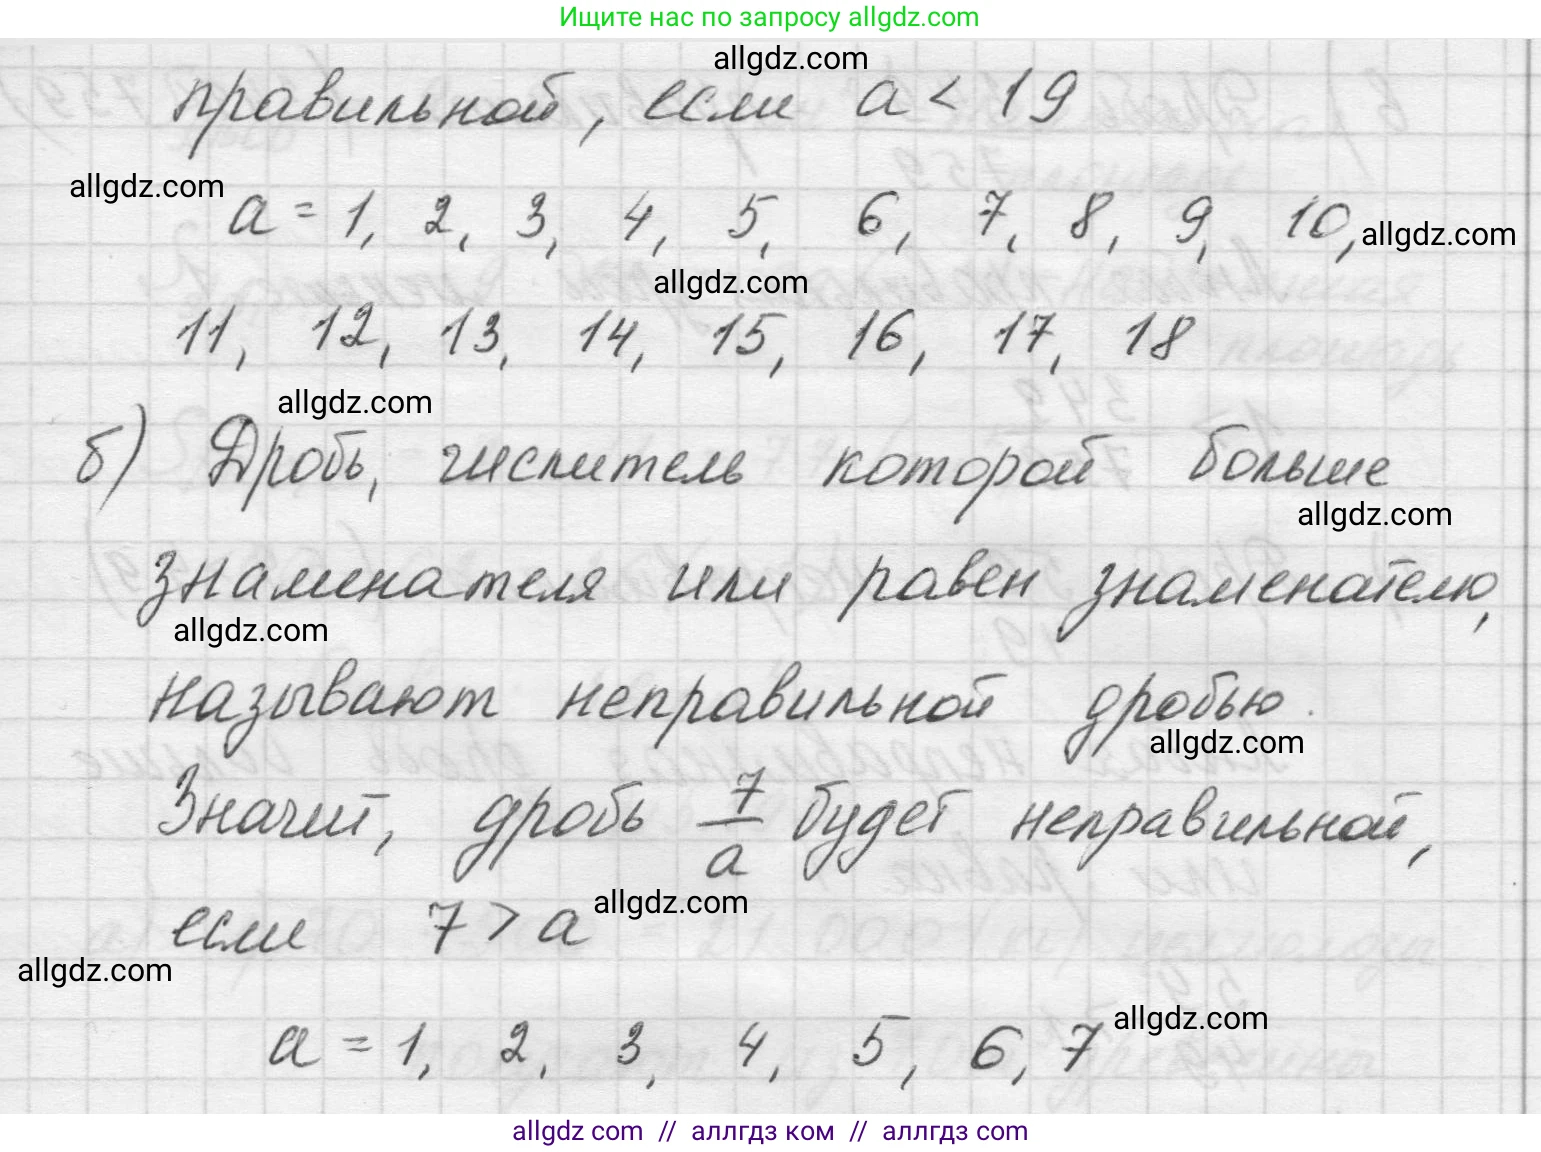 Ищите нас по запросу allgdz.com
allgdz.com
правильной, если a < 19
allgdz.com
a = 1, 2, 3, 4, 5, 6, 7, 8, 9, 10,
allgdz.com
allgdz.com
11, 12, 13, 14, 15, 16, 17, 18
allgdz.com
б) Дробь, числитель которой больше
allgdz.com
знаменателя или равен знаменателю,
allgdz.com
называют неправильной дробью.
allgdz.com
Значит, дробь 7/a будет неправильной,
allgdz.com
если 7 > a
allgdz.com
allgdz.com
a = 1, 2, 3, 4, 5, 6, 7
allgdz com // аллгдз ком // аллгдз com